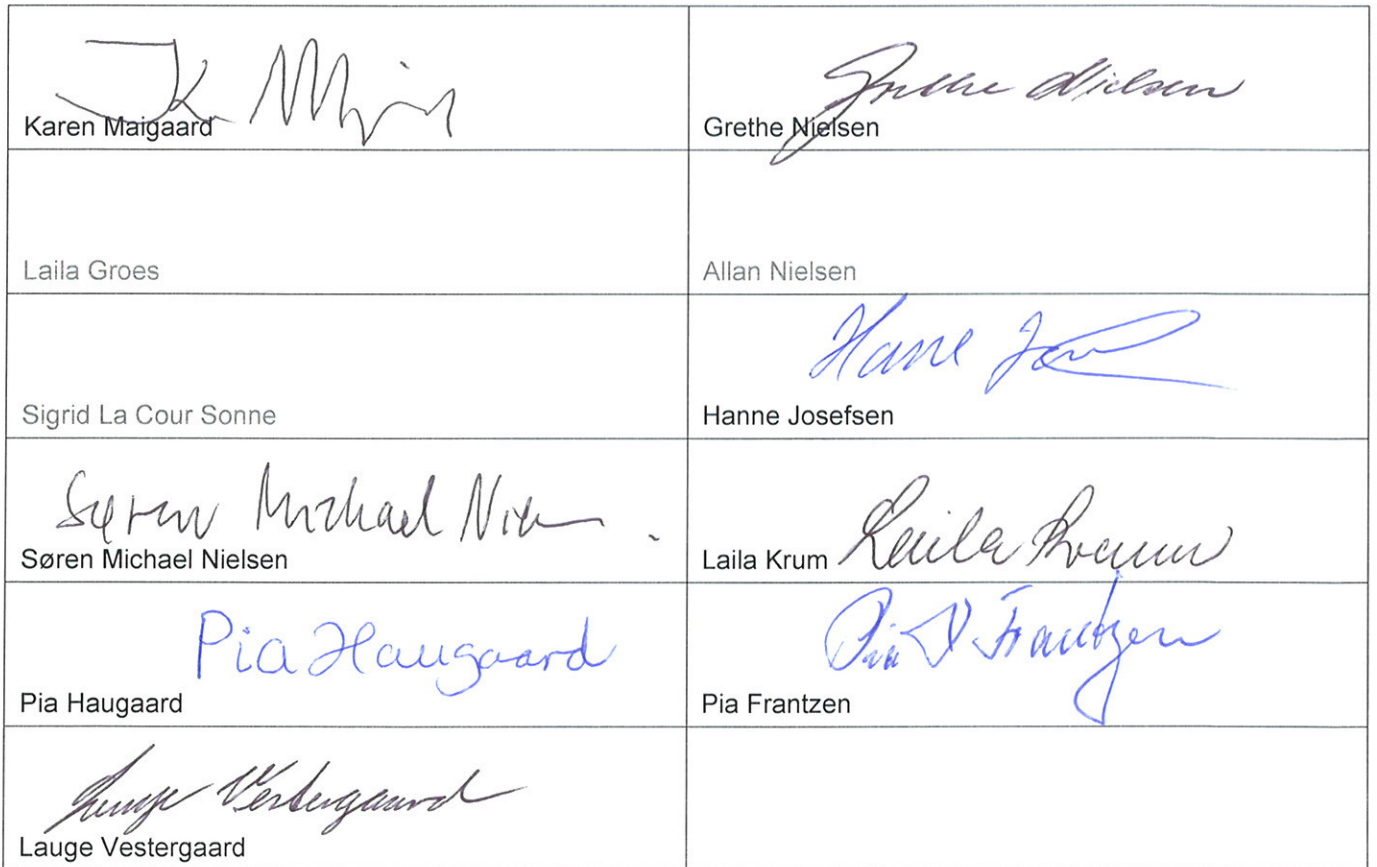 Karen Maigaard
Grethe Nielsen
Grethe Nielsen
Laila Groes
Allan Nielsen
Sigrid La Cour Sonne
Hanne
Hanne Josefsen
Søren Michael
Søren Michael Nielsen
Laila Krum
Laila
Pia Haugaard
Pia Haugaard
Pia Frantzen
Pia Frantzen
Lauge Vestergaard
Lauge Vestergaard